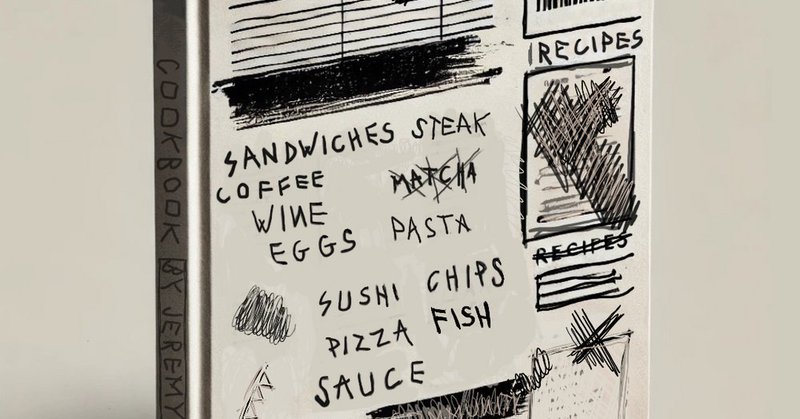 COOKBOOK BY JEREMY
RECIPES
SANDWICHES STEAK
COFFEE MATCHA
WINE
EGGS PASTA
RECIPES
SUSHI CHIPS
PIZZA FISH
SAUCE